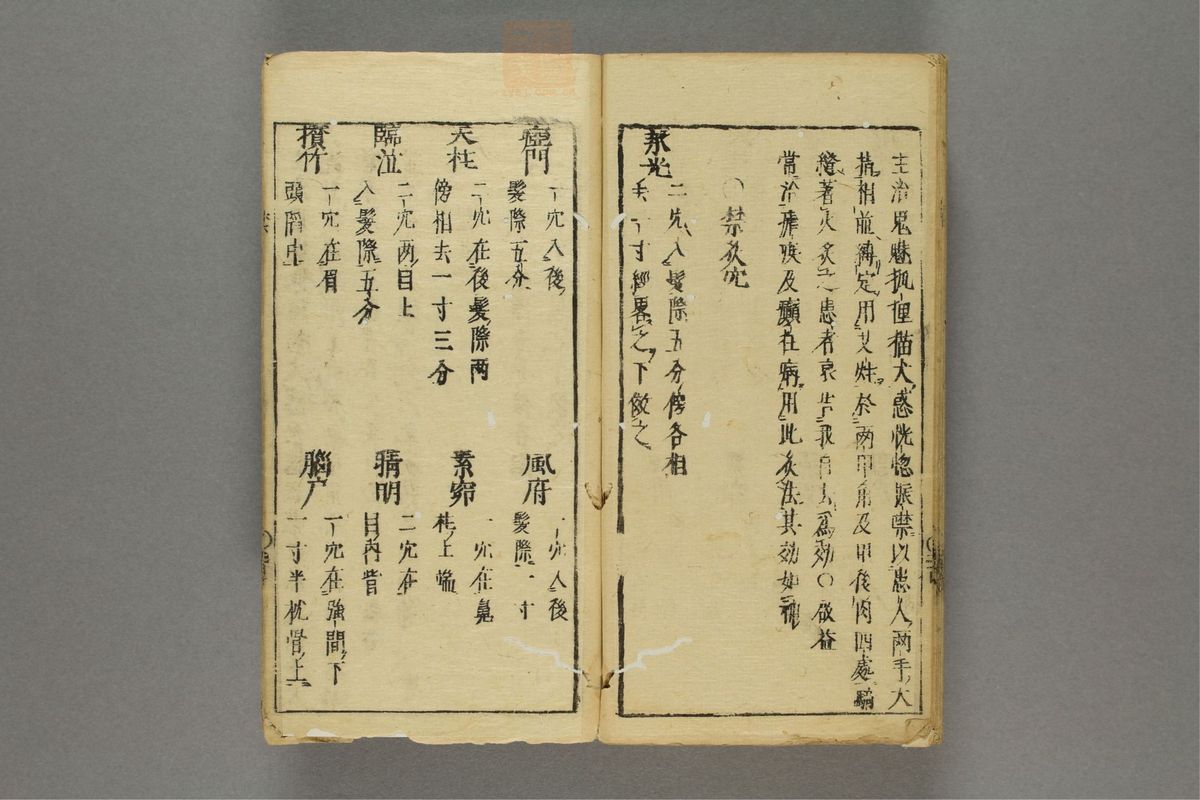 主治鬼魅狐狸猫犬惑恍惚振禁以患人兩手大
指相並縛定用艾炷於兩甲角及甲後肉四處騎
縫著火灸之患者哀告我自去爲効○啟益
常治癆瘵及癲狂病用此灸法其効如神
○禁灸穴
承光
二穴入髮際五分傍各相
去一寸經畧之下倣之
瘂門
一穴入後
髮際五分
風府
一穴入後
髮際一寸
天柱
二穴在後髮際两
傍相去一寸三分
素窌
一穴在鼻
柱上端
臨泣
二穴两目上
入髮際五分
睛明
二穴在
目內眥
攅竹
一穴在眉
頭陷中
腦户
一穴在強間下
一寸半枕骨上